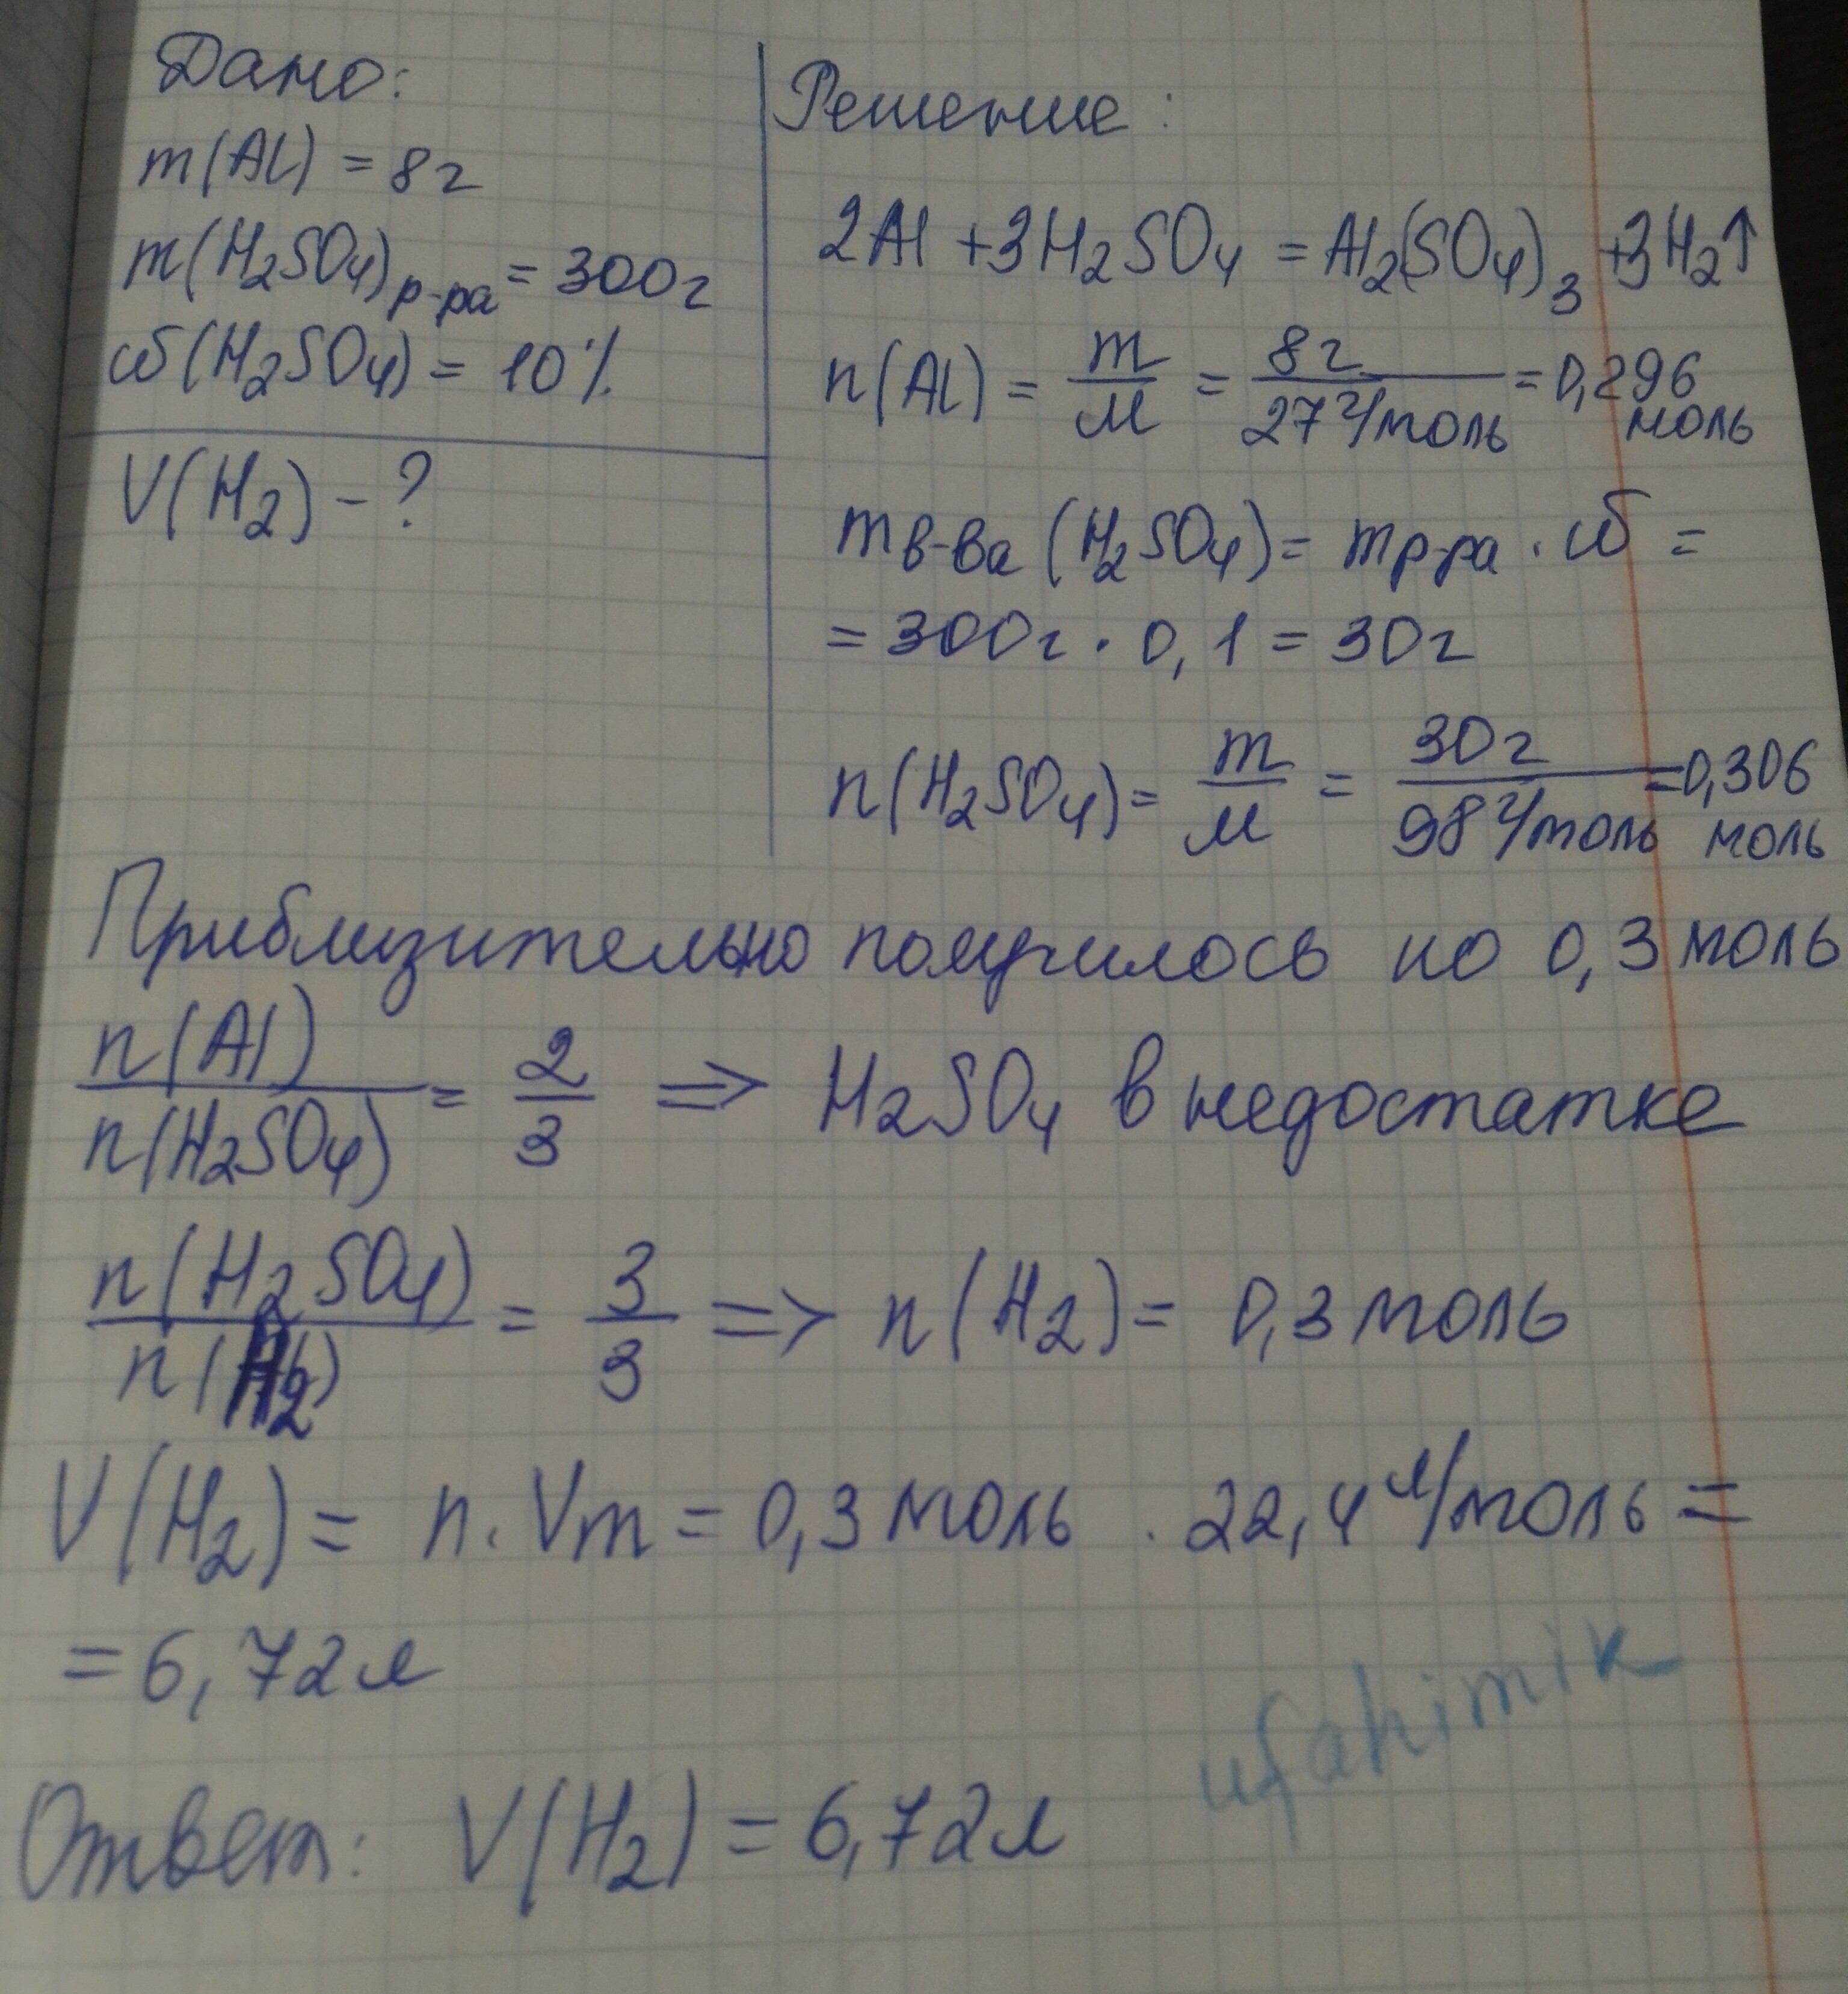 Дано:
m(Al) = 8г
m(H₂SO₄)р-ра = 300г
ω(H₂SO₄) = 10%
V(H₂) - ?
Решение:
2Al + 3H₂SO₄ = Al₂(SO₄)₃ + 3H₂↑
n(Al) = m/M = 8г/27 г/моль = 0,296 моль
mв-ва (H₂SO₄) = mр-ра · ω =
= 300г · 0,1 = 30г
n(H₂SO₄) = m/M = 30г/98 г/моль = 0,306 моль
Приблизительно получилось по 0,3 моль
n(Al)/n(H₂SO₄) = 2/3 => H₂SO₄ в недостатке
n(H₂SO₄)/n(H₂) = 3/3 => n(H₂) = 0,3 моль
V(H₂) = n · Vm = 0,3 моль · 22,4 л/моль =
= 6,72л
ufahimik
Ответ: V(H₂) = 6,72л